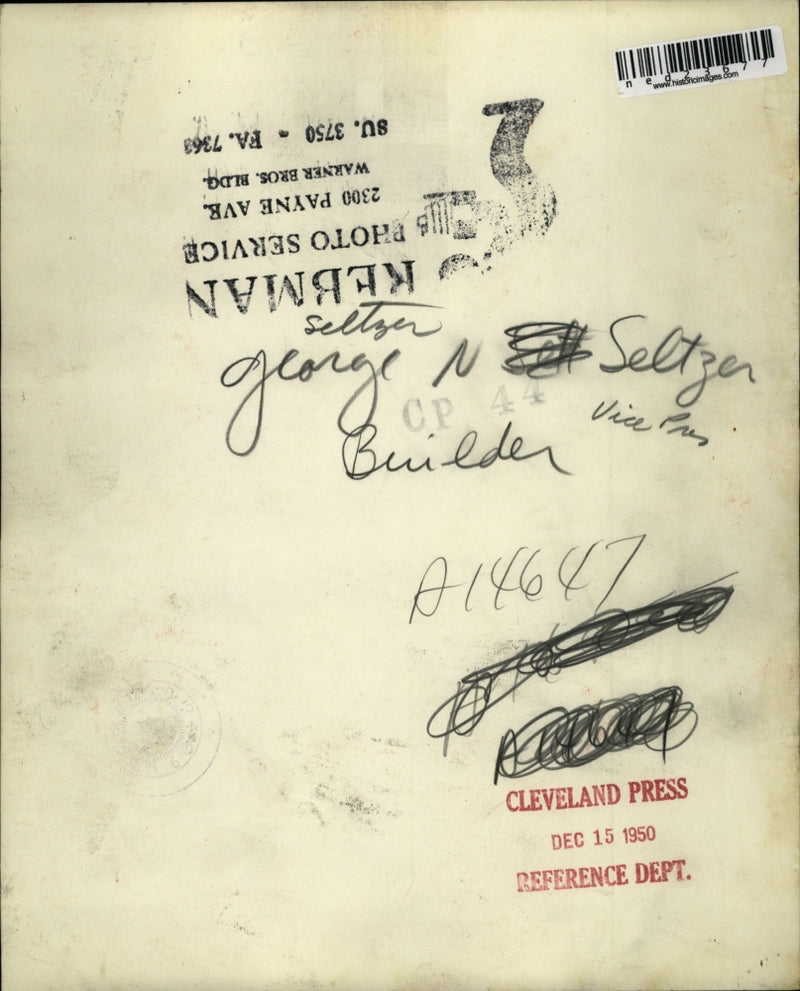 ned23677
www.historicimages.com
SU. 3750 - FA. 7363
WARNER BROS. BLDG.
2300 PAYNE AVE.
PHOTO SERVICE
REBMAN
Seltzer
George N Seltzer
CP 44
Vice Pres
Builder
A14647
A14647
CLEVELAND PRESS
DEC 15 1950
REFERENCE DEPT.